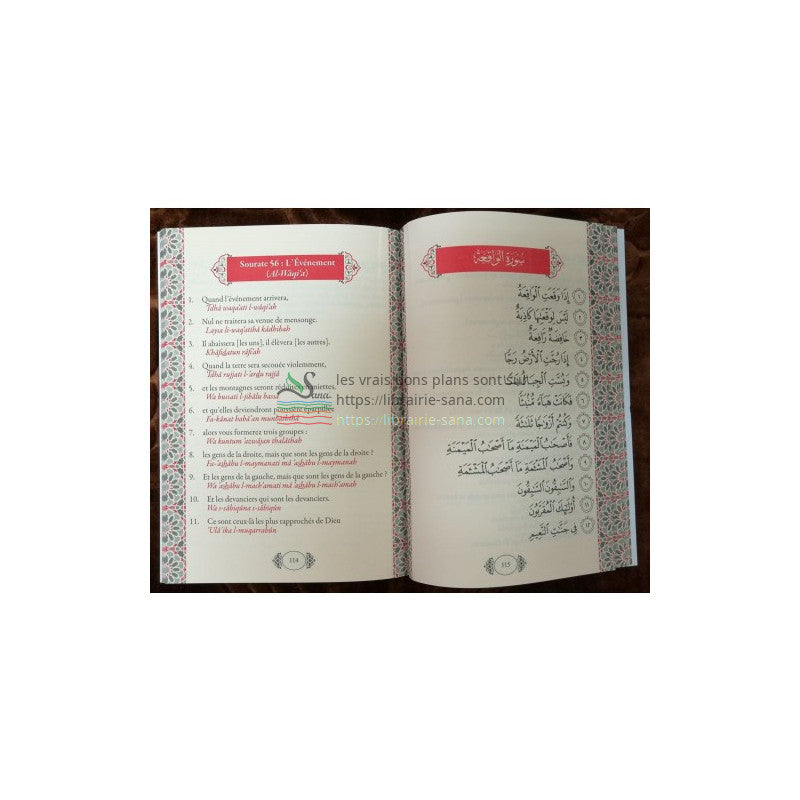 Sourate 56 : L'Événement
(Al-Wâqi'a)
1. Quand l'événement arrivera,
'Idhâ waqa'ati l-wâqi'ah
2. Nul ne traitera sa venue de mensonge.
Laysa li-waq'atihâ kâdhibah
3. Il abaissera [les uns], il élèvera [les autres].
Khâfiḍatun râfi'ah
4. Quand la terre sera secouée violemment,
'Idhâ rujjati l-'arḍu rajjâ
5. et les montagnes seront réduites
Wa bussati l-jibâlu bassâ
6. et qu'elles deviendront poussière éparpillée
Fa-kânat habâ'an munbaththâ
7. alors vous formerez trois groupes :
Wa kuntum 'azwâjan thalâthah
8. les gens de la droite, mais que sont les gens de la droite ?
Fa-'aṣḥâbu l-maymanati mâ 'aṣḥâbu l-maymanah
9. Et les gens de la gauche, mais que sont les gens de la gauche ?
Wa 'aṣḥâbu l-mach'amati mâ 'aṣḥâbu l-mach'amah
10. Et les devanciers qui sont les devanciers.
Wa s-sâbiqûna s-sâbiqûn
11. Ce sont ceux-là les plus rapprochés de Dieu
'Ulâ'ika l-muqarrabûn
114
سورة الواقعة
١ إِذَا وَقَعَتِ ٱلْوَاقِعَةُ
٢ لَيْسَ لِوَقْعَتِهَا كَاذِبَةٌ
٣ خَافِضَةٌ رَّافِعَةٌ
٤ إِذَا رُجَّتِ ٱلْأَرْضُ رَجًّا
٥ وَبُسَّتِ ٱلْجِبَالُ
٦ فَكَانَتْ هَبَاءً مُّنۢبَثًّا
٧ وَكُنتُمْ أَزْوَٰجًا ثَلَٰثَةً
٨ فَأَصْحَٰبُ ٱلْمَيْمَنَةِ مَا أَصْحَٰبُ ٱلْمَيْمَنَةِ
٩ وَأَصْحَٰبُ ٱلْمَشْـَٔمَةِ مَا أَصْحَٰبُ ٱلْمَشْـَٔمَةِ
١٠ وَٱلسَّٰبِقُونَ ٱلسَّٰبِقُونَ
١١ أُو۟لَٰٓئِكَ ٱلْمُقَرَّبُونَ
١٢ فِى جَنَّٰتِ ٱلنَّعِيمِ
115
Sana
les vrais bons plans sont là
https://librairie-sana.com
https://librairie-sana.com